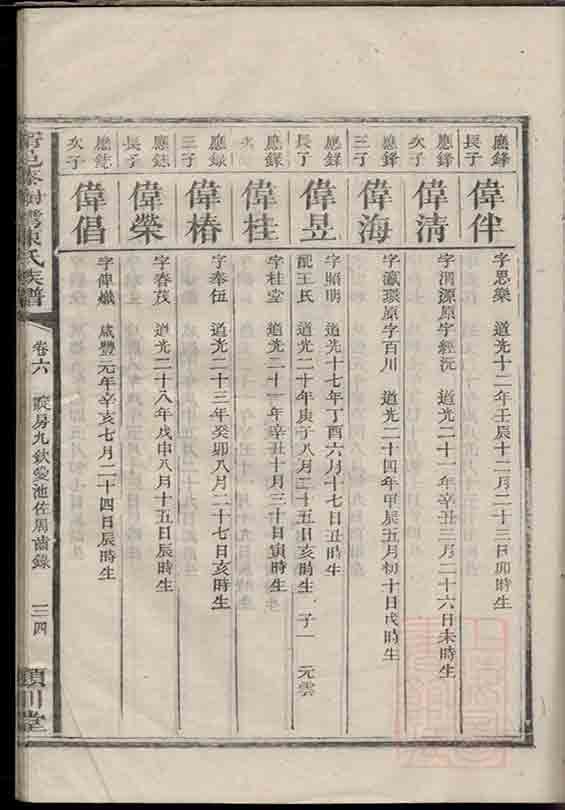 應鐸
長子
偉伴
字思樂 道光十二年壬辰十二月二十三日卯時生
應鐸
次子
偉清
字渭源原字經沅 道光二十一年辛丑三月二十六日未時生
應鐸
三子
偉海
字瀛環原字百川 道光二十四年甲辰五月初十日戌時生
應錄
長子
偉昱
字賜明 道光十七年丁酉六月十七日丑時生
配王氏 道光二十年庚子八月二十五日亥時生 子一 元雲
應錄
次子
偉桂
字桂堂 道光二十一年辛丑十月三十日寅時生
應錄
三子
偉椿
字奉伍 道光二十三年癸卯八月二十七日亥時生
應鋕
長子
偉榮
字春茂 道光二十八年戊申八月十五日辰時生
應鋕
次子
偉倡
字偉熾 咸豐元年辛亥七月二十四日辰時生
陳氏族譜
卷六
房九欽愛池佐周齒錄
三四
潁川堂